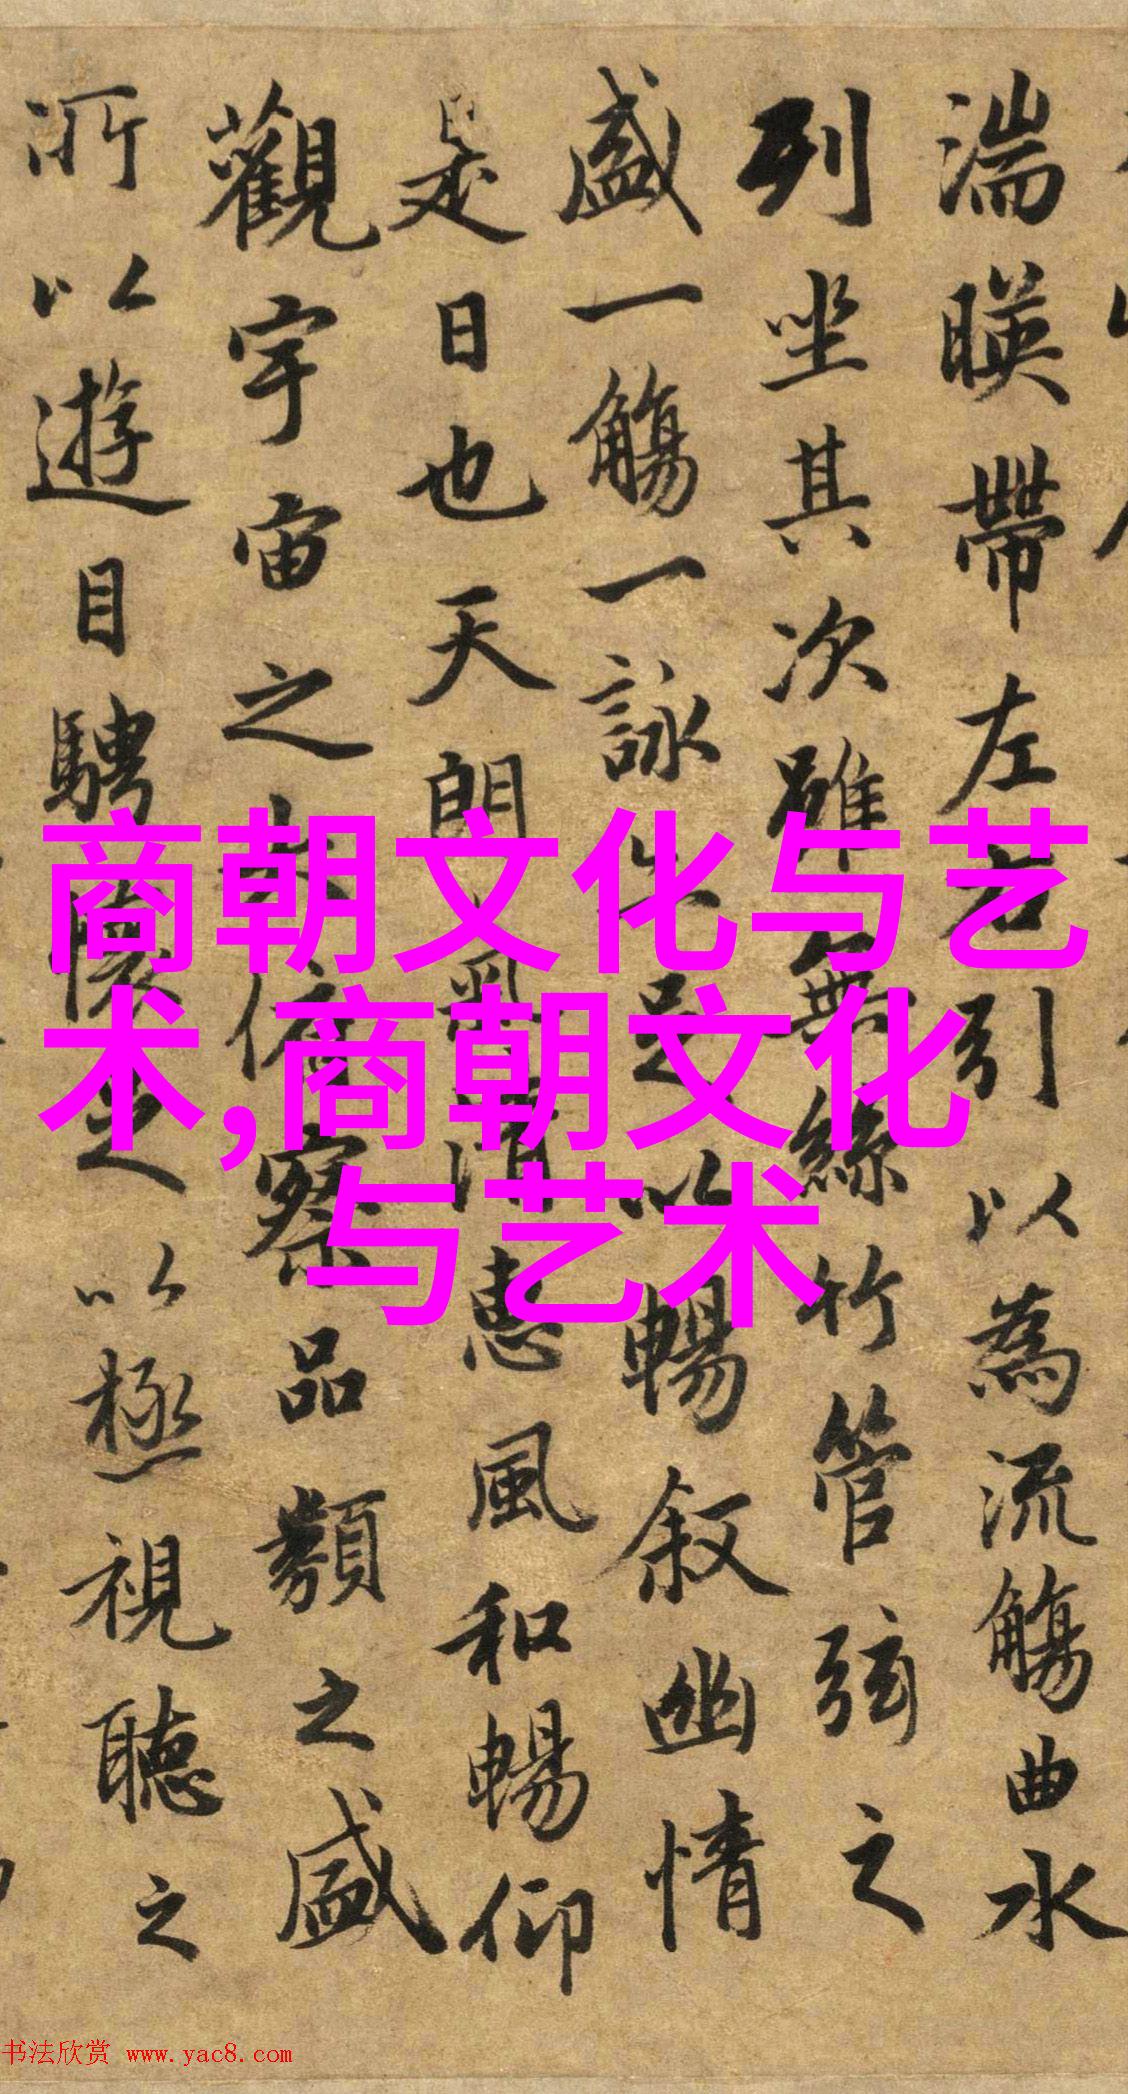 湍暎帶左右引以為流觴曲水
列坐其次雖無絲竹管弦之
盛一觴一詠足以暢叙幽情
是日也天朗氣清惠風和暢仰
觀宇宙之大俯察品類之盛
所以遊目騁懷足以極視聽之
商朝文化与艺
术,商朝文化
与艺术
书法欣赏 www.yac8.com